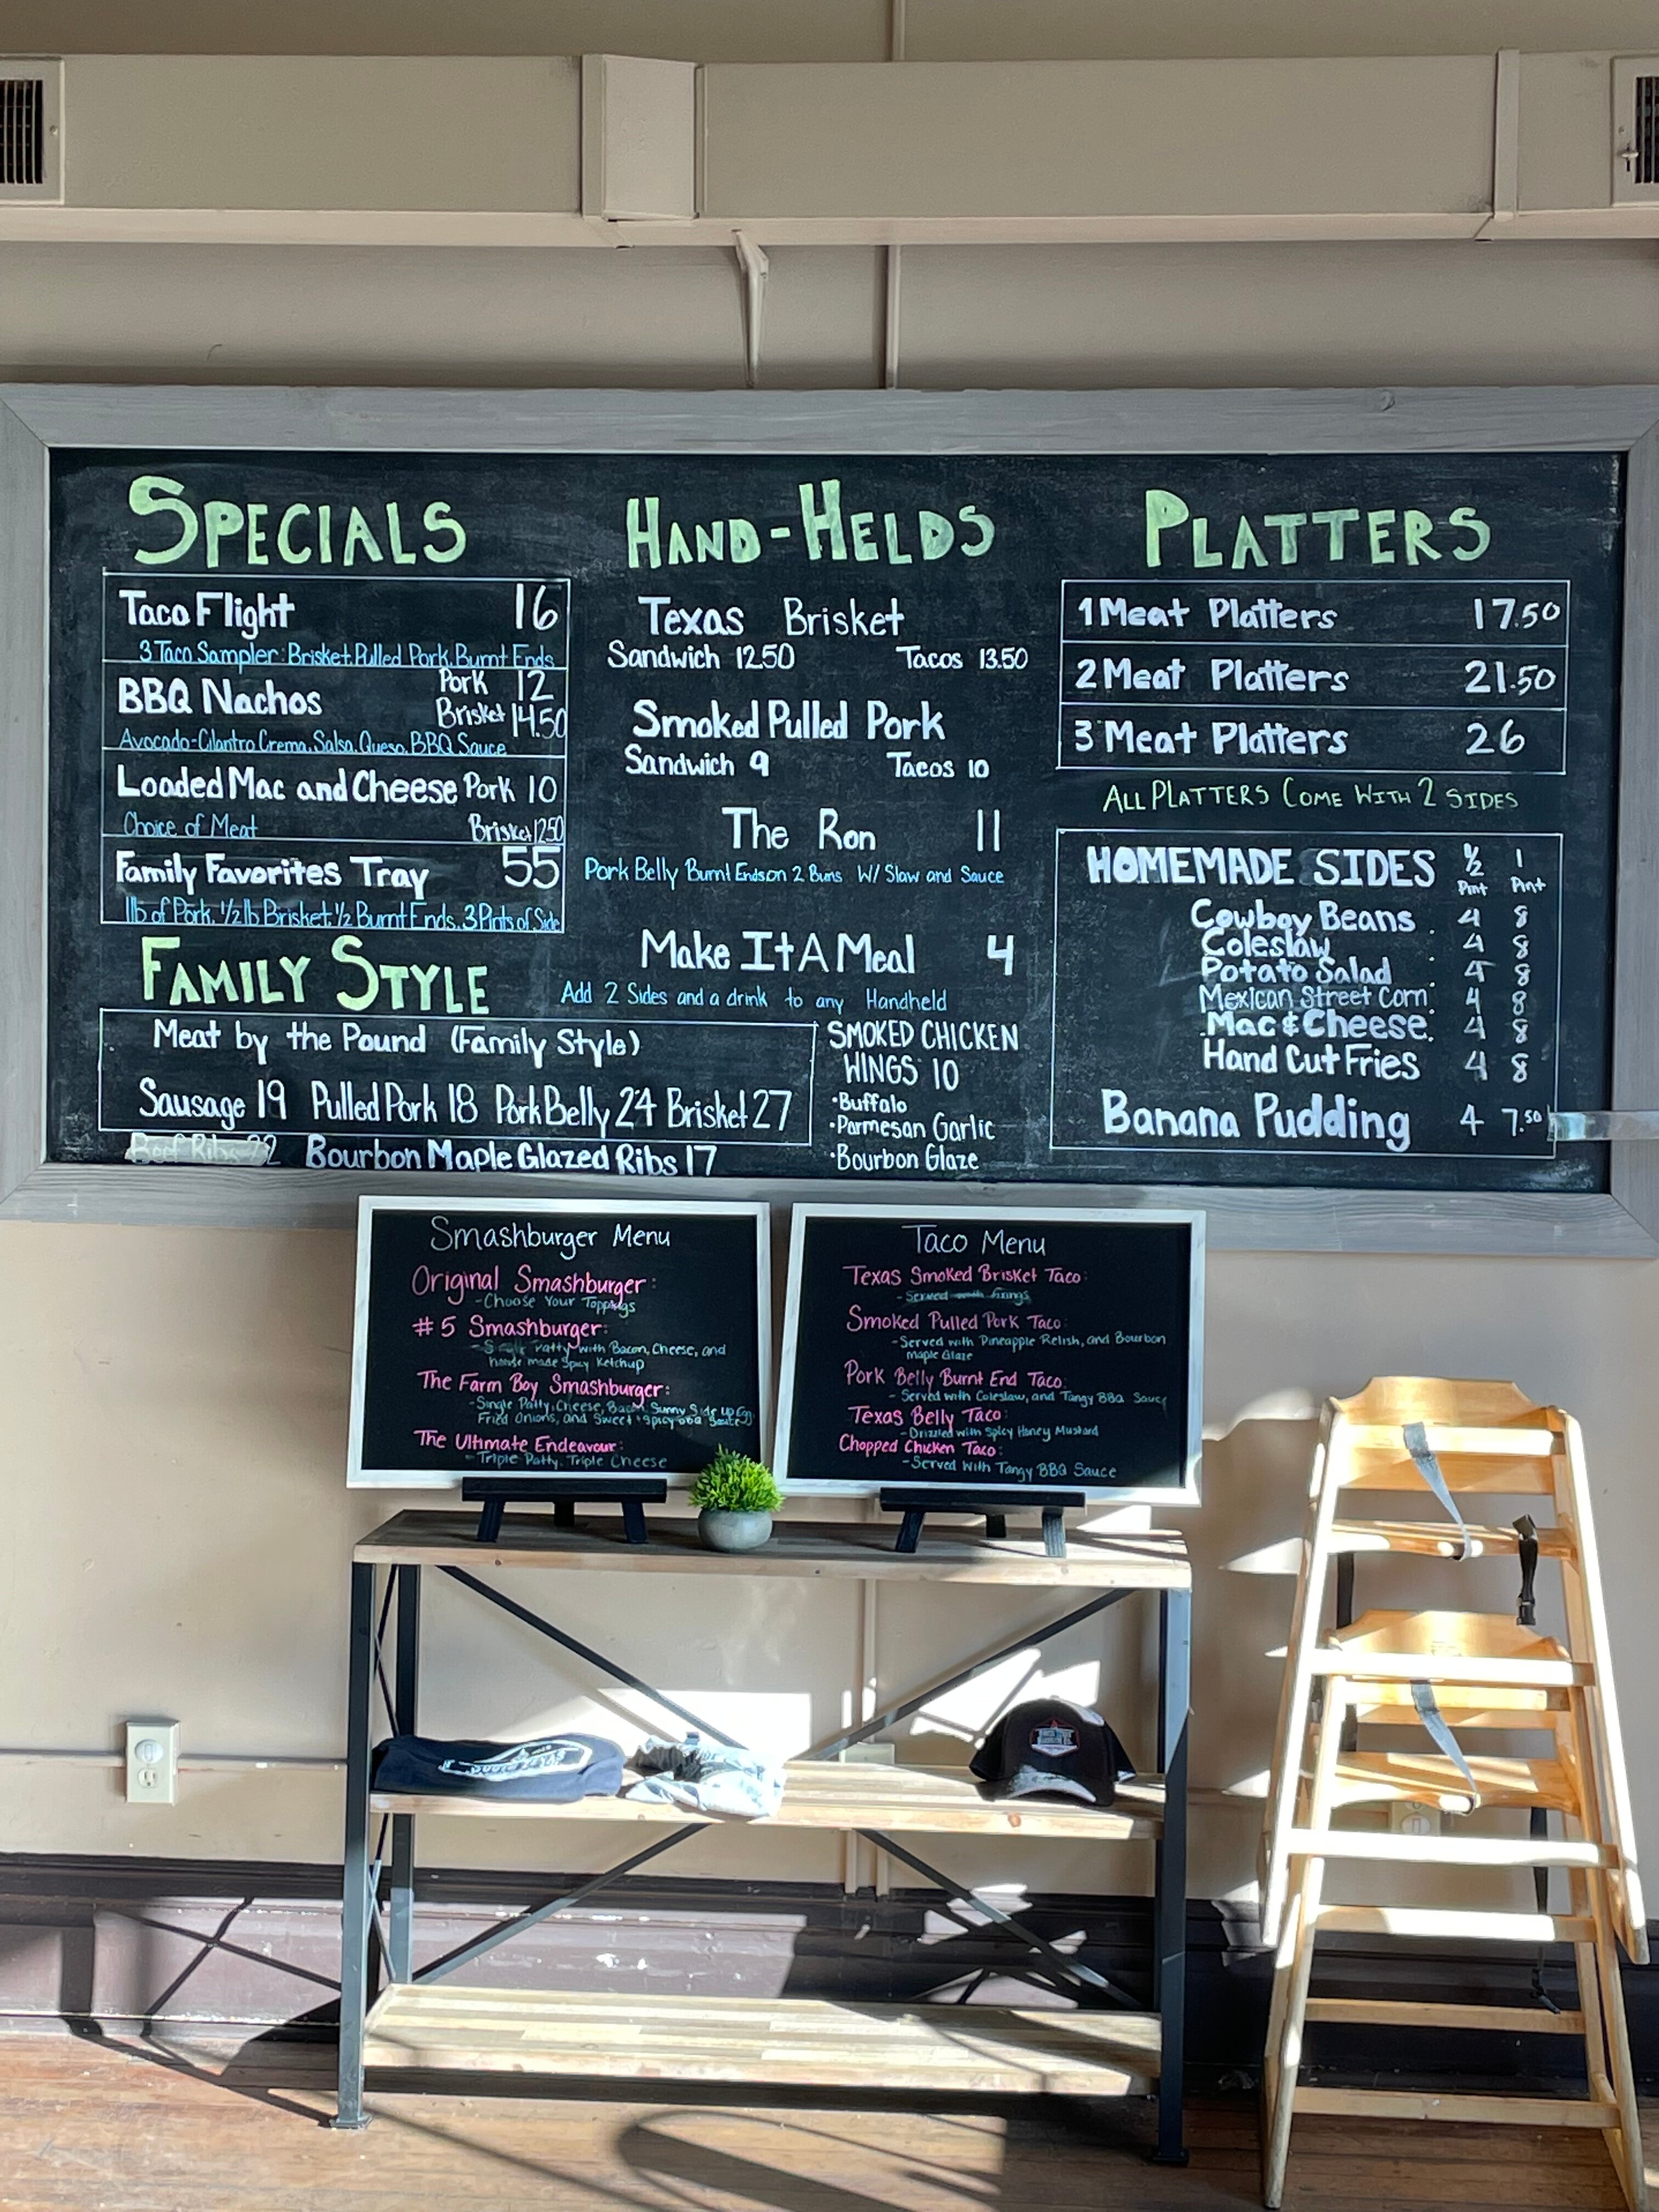 SPECIALS
Taco Flight 16
3 Taco Sampler: Brisket, Pulled Pork, Burnt Ends
BBQ Nachos Pork 12
Brisket 14.50
Avocado-Cilantro Crema, Salsa, Queso, BBQ Sauce
Loaded Mac and Cheese Pork 10
Choice of Meat Brisket 12.50
Family Favorites Tray 55
1lb of Pork, 1/2 lb Brisket, 1/2 Burnt Ends, 3 Pints of Side
FAMILY STYLE
Meat by the Pound (Family Style)
Sausage 19 Pulled Pork 18 Pork Belly 24 Brisket 27
Beef Ribs 22 Bourbon Maple Glazed Ribs 17
HAND-HELDS
Texas Brisket
Sandwich 12.50 Tacos 13.50
Smoked Pulled Pork
Sandwich 9 Tacos 10
The Ron 11
Pork Belly Burnt Ends on 2 Buns W/ Slaw and Sauce
Make It A Meal 4
Add 2 Sides and a drink to any Handheld
SMOKED CHICKEN
WINGS 10
•Buffalo
•Parmesan Garlic
•Bourbon Glaze
PLATTERS
1 Meat Platters 17.50
2 Meat Platters 21.50
3 Meat Platters 26
ALL PLATTERS COME WITH 2 SIDES
HOMEMADE SIDES 1/2 Pint 1 Pint
Cowboy Beans . 4 8
Coleslaw . 4 8
Potato Salad . 4 8
Mexican Street Corn . 4 8
Mac & Cheese . 4 8
Hand Cut Fries 4 8
Banana Pudding 4 7.50
Smashburger Menu
Original Smashburger:
-Choose Your Toppings
#5 Smashburger:
Patty with Bacon, Cheese, and
house made Spicy Ketchup
The Farm Boy Smashburger:
-Single Patty, Cheese, Bacon, Sunny Side Up Egg,
Fried Onions, and Sweet + Spicy BBQ Sauce
The Ultimate Endeavour:
-Triple Patty, Triple Cheese
Taco Menu
Texas Smoked Brisket Taco:
-Served with fixings
Smoked Pulled Pork Taco:
-Served with Pineapple Relish, and Bourbon
maple Glaze
Pork Belly Burnt End Taco:
-Served with Coleslaw, and Tangy BBQ Sauce
Texas Belly Taco:
-Drizzled with Spicy Honey Mustard
Chopped Chicken Taco:
-Served with Tangy BBQ Sauce